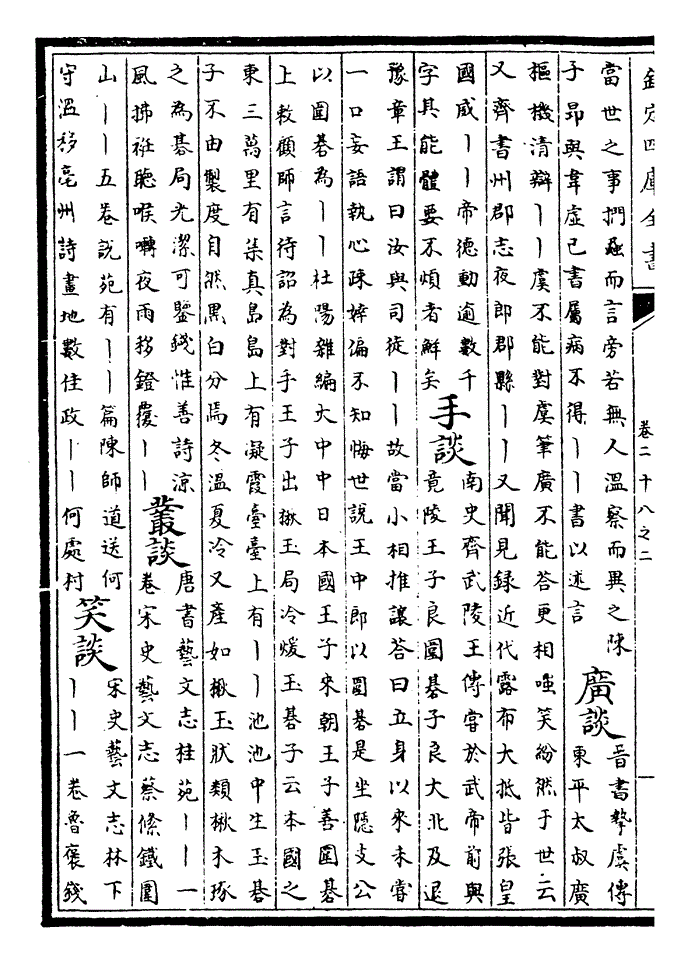 欽定四庫全書
卷二十八之二
一
當世之事捫蝨而言旁若無人溫察而異之陳
子昂與韋虛已書屬病不得丨丨書以述言
廣談
晉書摯虞傳
東平太叔廣
樞機清辯丨丨虞不能對虞筆廣不能答更相嗤笑紛然于世云
又齊書州郡志夜郎郡縣丨丨又聞見録近代露布大抵皆張皇
國威丨丨帝德動逾數千
字其能體要不煩者鮮矣
手談
南史齊武陵王傳嘗於武帝前與
竟陵王子良圍碁子良大北及退
豫章王謂曰汝與司徒丨丨故當小相推讓荅曰立身以來未嘗
一口妄語執心疎婞偏不知悔世說王中郎以圍碁是坐隠支公
以圍碁為丨丨杜陽雜編大中中日本國王子來朝王子善圍碁
上敕顧師言待詔為對手王子出楸玉局冷煖玉碁子云本國之
東三萬里有集真島島上有凝霞臺臺上有丨丨池池中生玉碁
子不由製度自然黑白分焉冬溫夏冷又產如楸玉狀類楸木琢
之為碁局光潔可鑒錢惟善詩涼
風拂袵聴喉囀夜雨移鐙覆丨丨
叢談
唐書藝文志桂苑丨丨一
卷宋史藝文志蔡絛鐵圍
山丨丨五卷説苑有丨丨篇陳師道送何
守溫移亳州詩畫地數佳政丨丨何處村
笑談
宋史藝文志林下
丨丨一卷魯褒錢